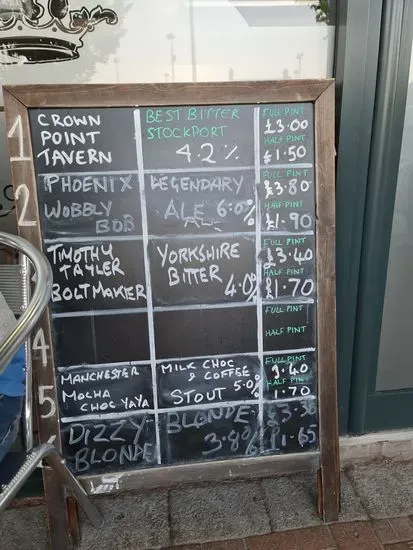 1
CROWN
POINT
TAVERN
BEST BITTER
STOCKPORT
4.2%
FULL PINT
£3.00
HALF PINT
£1.50
2
PHOENIX
WOBBLY
BOB
LEGENDARY
ALE 6.0%
ALE
FULL PINT
£3.80
HALF PINT
£1.90
TIMOTHY
TAYLER
BOLTMAKER
YORKSHIRE
BITTER
4.0%
FULL PINT
£3.40
HALF PINT
£1.70
4
FULL PINT
HALF PINT
5
MANCHESTER
MOCHA
CHOC YAYA
MILK CHOC
& COFFEE
STOUT 5.0%
FULL PINT
3.40
HALF PINT
1.70
DIZZY
BLONDE
BLONDE
3.8%
£3.30
£1.65